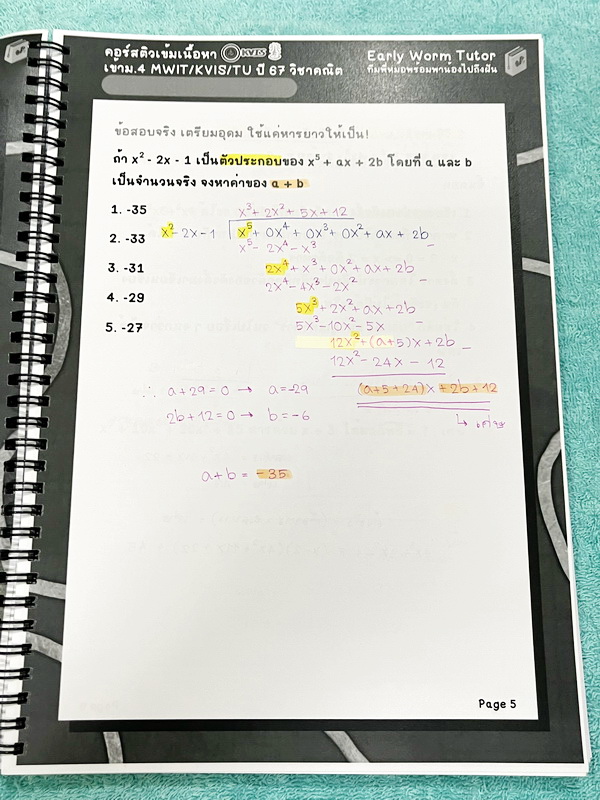 คอร์สติวเข้มเนื้อหา KVIS
เข้าม.4 MWIT/KVIS/TU ปี 67 วิชาคณิต
Early Worm Tutor
ทีมพี่หมอพร้อมพาน้องไปถึงฝัน
ข้อสอบจริง เตรียมอุดม ใช้แค่หารยาวให้เป็น!
ถ้า x² - 2x - 1 เป็นตัวประกอบของ x⁵ + ax + 2b โดยที่ a และ b
เป็นจำนวนจริง จงหาค่าของ a + b
1. -35
2. -33
3. -31
4. -29
5. -27
x³ + 2x² + 5x + 12
x² - 2x - 1 x⁵ + 0x⁴ + 0x³ + 0x² + ax + 2b
x⁵ - 2x⁴ - x³ -
2x⁴ + x³ + 0x² + ax + 2b
2x⁴ - 4x³ - 2x² -
5x³ + 2x² + ax + 2b
5x³ - 10x² - 5x -
12x² + (a+5)x + 2b
12x² - 24x - 12 -
(a+5+24)x + 2b + 12
↳ เศษ
∴ a + 29 = 0 → a = -29
2b + 12 = 0 → b = -6
a + b = -35
Page 5